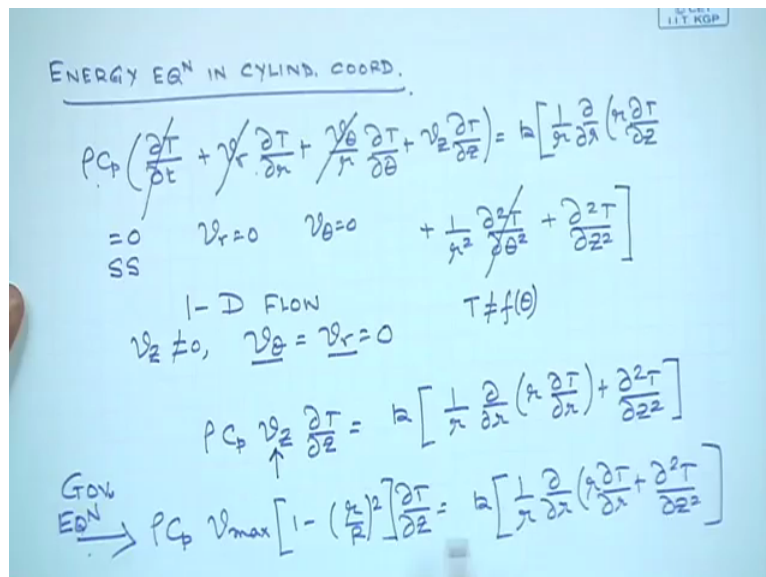 IIT KGP
ENERGY EQᴺ IN CYLIND. COORD.
ρCp(∂T/∂t + vr ∂T/∂r + vθ/r ∂T/∂θ + vz ∂T/∂z) = k[1/r ∂/∂r (r ∂T/∂z
=0 vr=0 vθ=0 + 1/r² ∂²T/∂θ² + ∂²T/∂z²]
SS
1-D FLOW T≠f(θ)
vz ≠0, vθ = vr = 0
ρ Cp vz ∂T/∂z = k[1/r ∂/∂r (r ∂T/∂r) + ∂²T/∂z²]
↑
Gov. EQᴺ → ρCp vmax[1-(r/R)²]∂T/∂z = k[1/r ∂/∂r (r ∂T/∂r + ∂²T/∂z²]